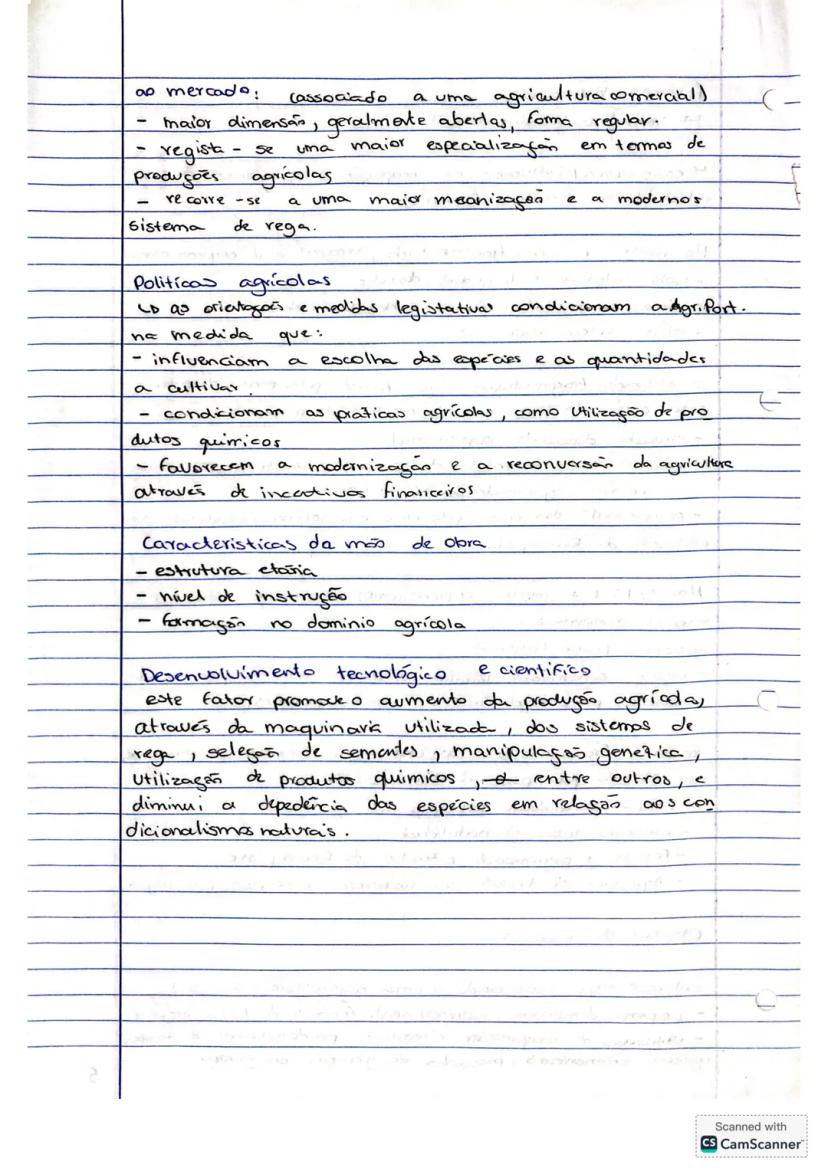 ao mercado: (associado a uma agricultura comercial)
- maior dimensão, geralmente abertas, forma regular.
- regista-se uma maior especialização em termos de
produções agrícolas
- recorre-se a uma maior mecanização e a modernos
sistema de rega.
Politicas agrícolas
↳ as orientações e medidas legislativas condicionam a Agri. Port.
na medida que:
- influenciam a escolha das espécies e as quantidades
a cultivar.
- condicionam as praticas agrícolas, como Utilização de pro
dutos quimicos
- favorecem a modernização e a reconversão da agricultura
através de incentivos financeiros
Caracteristicas da mão de Obra
- estrutura etária
- nível de instrução
- formação no dominio agrícola
Desenvolvimento tecnológico e cientifico
este fator promove o aumento da produção agrícola,
através da maquinaria utilizada, dos sistemas de
rega, seleção de sementes, manipulação genetica,
utilização de produtos quimicos, entre outros, e
diminui a depedência das espécies em relação aos con
dicionalismos naturais.
5
Scanned with
CS CamScanner